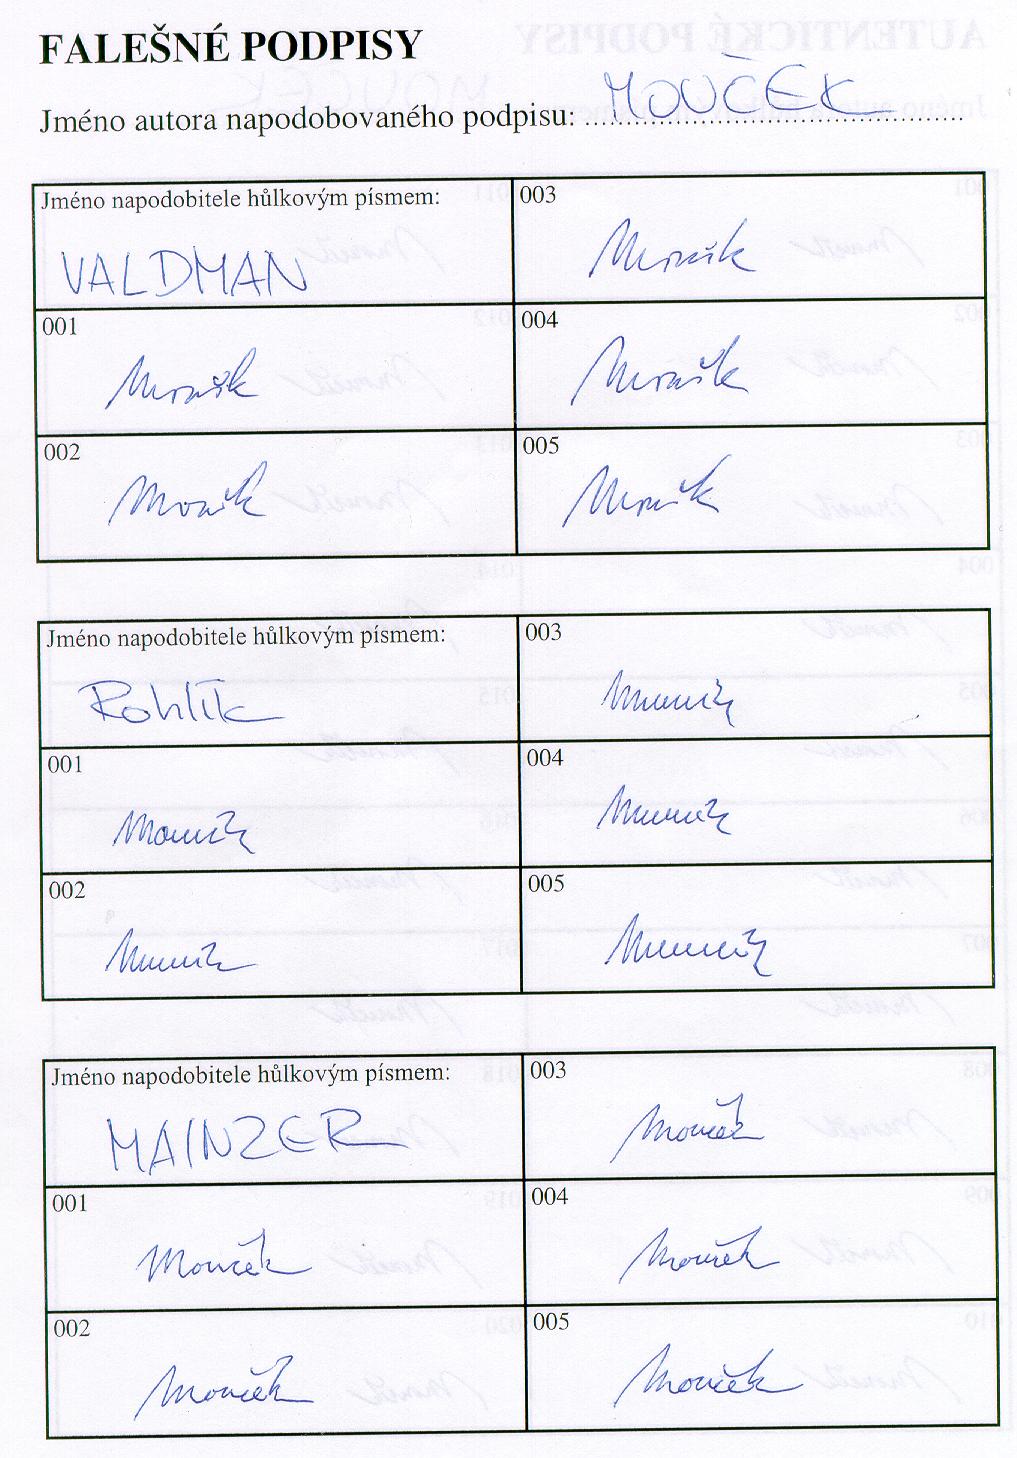 FALEŠNÉ PODPISY
Jméno autora napodobovaného podpisu: MOUČEK
Jméno napodobitele hůlkovým písmem:
VALDMAN
001
002
003
004
005
Jméno napodobitele hůlkovým písmem:
Rohlík
001
002
003
004
005
Jméno napodobitele hůlkovým písmem:
MAINZER
001
Mouček
002
Mouček
003
Mouček
004
Mouček
005
Mouček